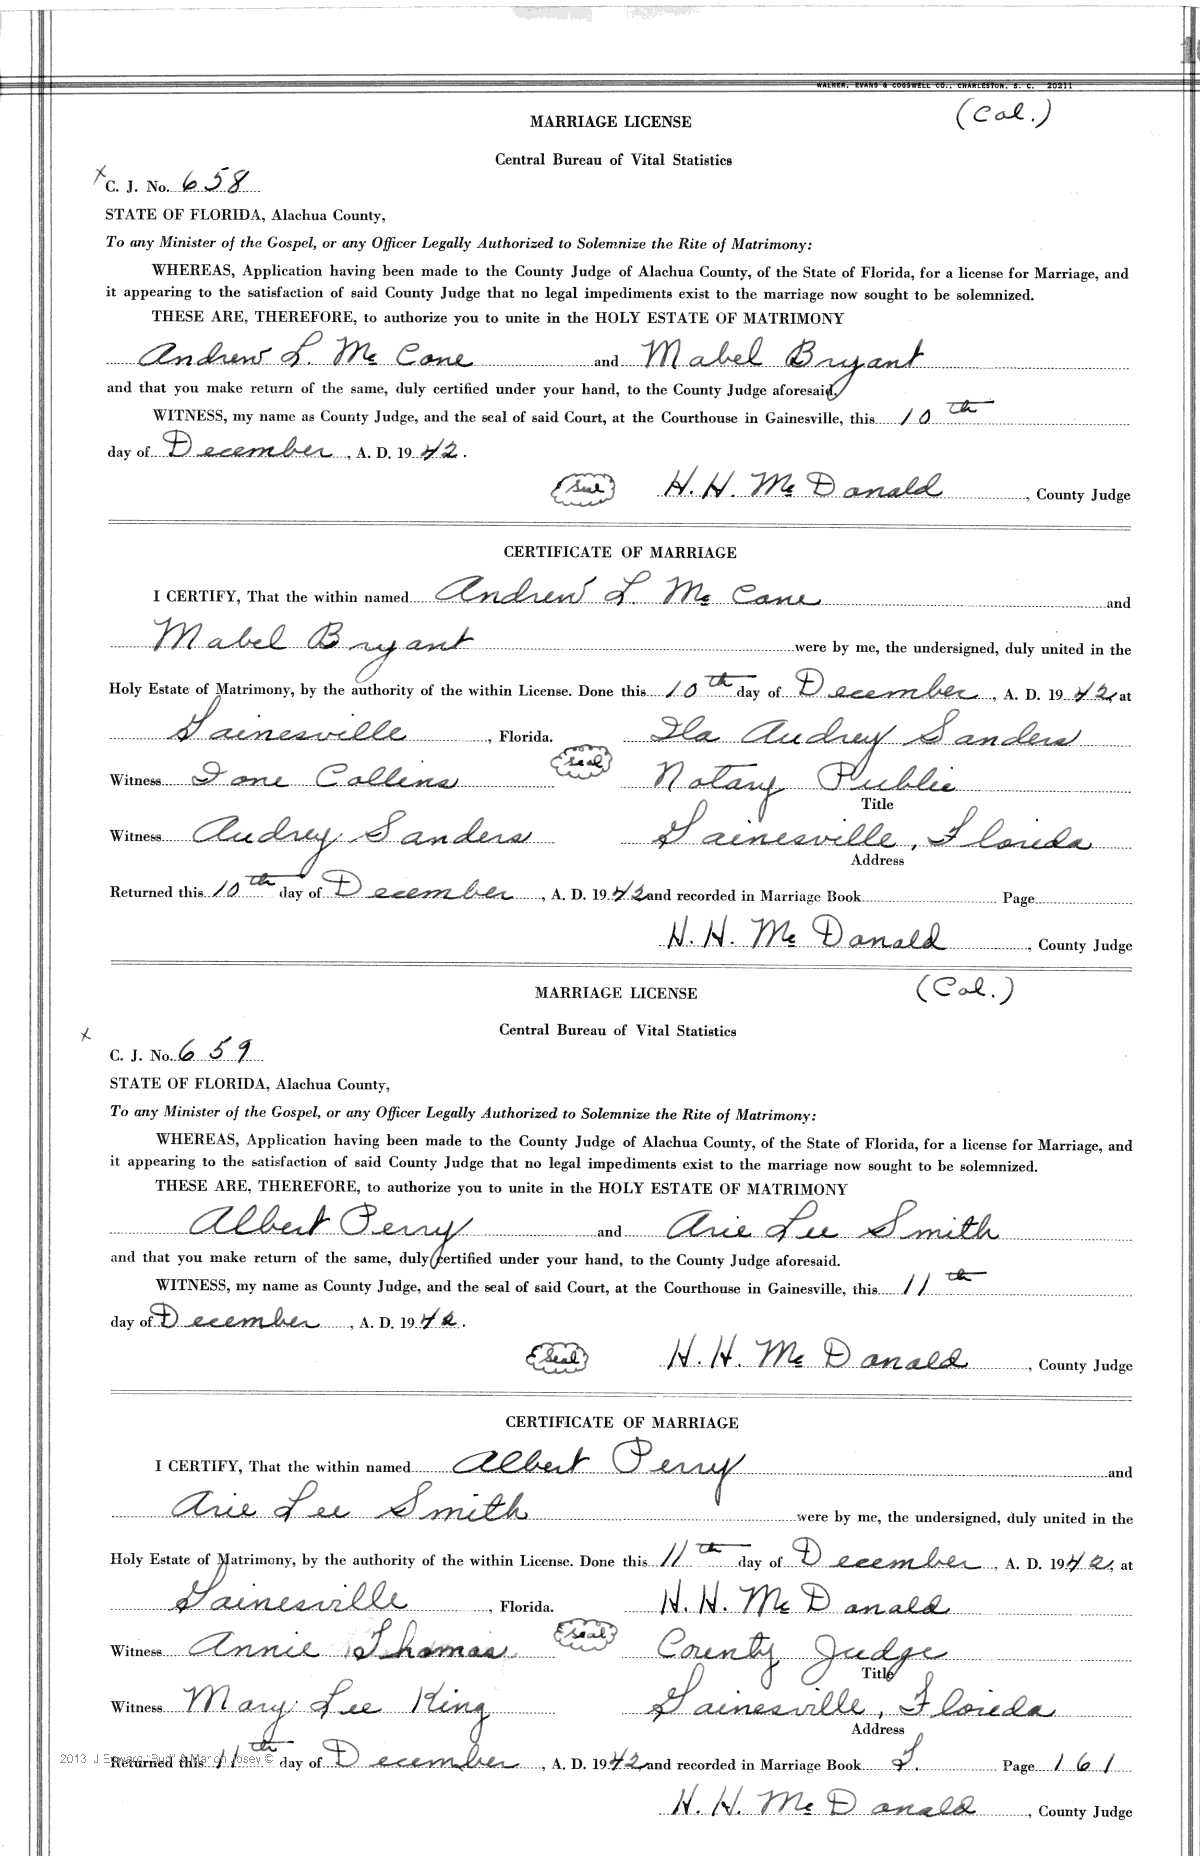 WALKER, EVANS & COGSWELL CO., CHARLESTON, S. C. 20211
(Col.)
MARRIAGE LICENSE
Central Bureau of Vital Statistics
x C. J. No. 658
STATE OF FLORIDA, Alachua County,
To any Minister of the Gospel, or any Officer Legally Authorized to Solemnize the Rite of Matrimony:
WHEREAS, Application having been made to the County Judge of Alachua County, of the State of Florida, for a license for Marriage, and
it appearing to the satisfaction of said County Judge that no legal impediments exist to the marriage now sought to be solemnized.
THESE ARE, THEREFORE, to authorize you to unite in the HOLY ESTATE OF MATRIMONY
Andrew L. Mc Cone and Mabel Bryant
and that you make return of the same, duly certified under your hand, to the County Judge aforesaid.
WITNESS, my name as County Judge, and the seal of said Court, at the Courthouse in Gainesville, this 10th
day of December, A. D. 1942.
Seal H. H. Mc Donald, County Judge
CERTIFICATE OF MARRIAGE
I CERTIFY, That the within named Andrew L. Mc Cone and
Mabel Bryant were by me, the undersigned, duly united in the
Holy Estate of Matrimony, by the authority of the within License. Done this 10th day of December, A. D. 1942, at
Gainesville, Florida. Ila Audrey Sanders
Witness Ione Collins Seal Notary Public
Title
Witness Audrey Sanders Gainesville, Florida
Address
Returned this 10th day of December, A. D. 1942 and recorded in Marriage Book Page
H. H. Mc Donald, County Judge
MARRIAGE LICENSE (Col.)
Central Bureau of Vital Statistics
x C. J. No. 659
STATE OF FLORIDA, Alachua County,
To any Minister of the Gospel, or any Officer Legally Authorized to Solemnize the Rite of Matrimony:
WHEREAS, Application having been made to the County Judge of Alachua County, of the State of Florida, for a license for Marriage, and
it appearing to the satisfaction of said County Judge that no legal impediments exist to the marriage now sought to be solemnized.
THESE ARE, THEREFORE, to authorize you to unite in the HOLY ESTATE OF MATRIMONY
Albert Perry and Arie Lee Smith
and that you make return of the same, duly certified under your hand, to the County Judge aforesaid.
WITNESS, my name as County Judge, and the seal of said Court, at the Courthouse in Gainesville, this 11th
day of December, A. D. 1942.
Seal H. H. Mc Donald, County Judge
CERTIFICATE OF MARRIAGE
I CERTIFY, That the within named Albert Perry and
Arie Lee Smith were by me, the undersigned, duly united in the
Holy Estate of Matrimony, by the authority of the within License. Done this 11th day of December, A. D. 1942, at
Gainesville, Florida. H. H. Mc Donald
Witness Annie Thomas Seal County Judge
Title
Witness Mary Lee King Gainesville, Florida
Address
2013 J Edward "Bud" & Marion Josey ©
Returned this 11th day of December, A. D. 1942 and recorded in Marriage Book Page 161
H. H. Mc Donald, County Judge